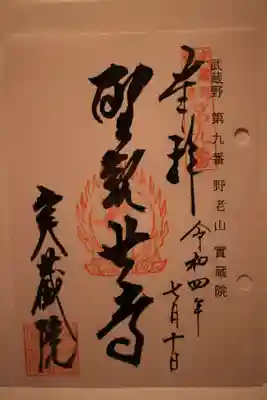 武蔵野 第九番 野老山 實蔵院
奉拝
令和四年
七月十日
聖観世音
実蔵院